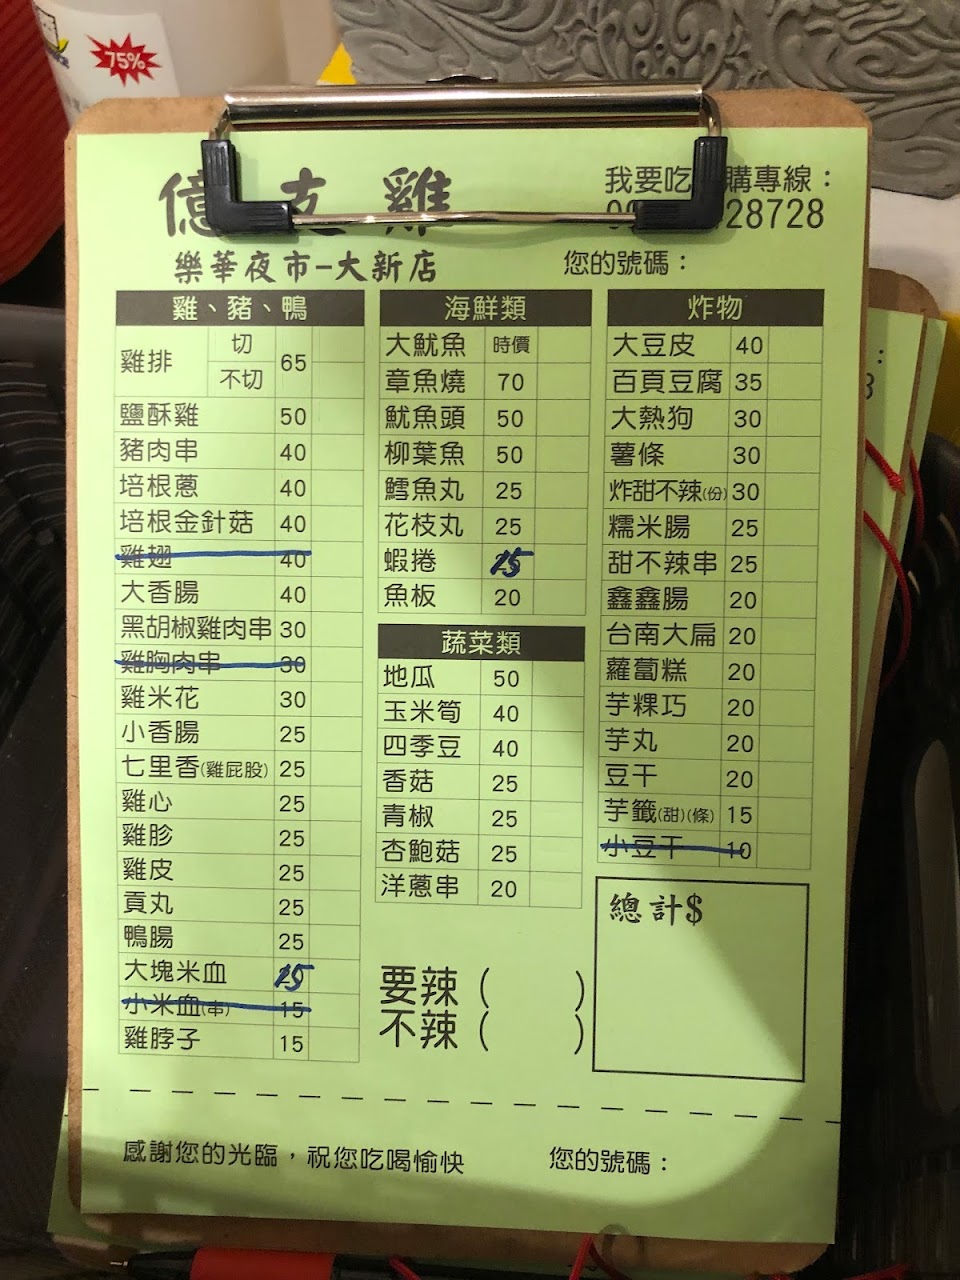 75%
億 雞
樂華夜市-大新店
我要吃 購專線：
28728
您的號碼：
雞、豬、鴨
雞排 切 不切 65
鹽酥雞 50
豬肉串 40
培根蔥 40
培根金針菇 40
雞翅 40
大香腸 40
黑胡椒雞肉串 30
雞胸肉串 30
雞米花 30
小香腸 25
七里香(雞屁股) 25
雞心 25
雞胗 25
雞皮 25
貢丸 25
鴨腸 25
大塊米血 25
小米血(串) 15
雞脖子 15
海鮮類
大魷魚 時價
章魚燒 70
魷魚頭 50
柳葉魚 50
鱈魚丸 25
花枝丸 25
蝦捲 25
魚板 20
蔬菜類
地瓜 50
玉米筍 40
四季豆 40
香菇 25
青椒 25
杏鮑菇 25
洋蔥串 20
要辣 ( )
不辣 ( )
炸物
大豆皮 40
百頁豆腐 35
大熱狗 30
薯條 30
炸甜不辣(份) 30
糯米腸 25
甜不辣串 25
鑫鑫腸 20
台南大扁 20
蘿蔔糕 20
芋粿巧 20
芋丸 20
豆干 20
芋籤(甜)(條) 15
小豆干 10
總計$
感謝您的光臨，祝您吃喝愉快
您的號碼：